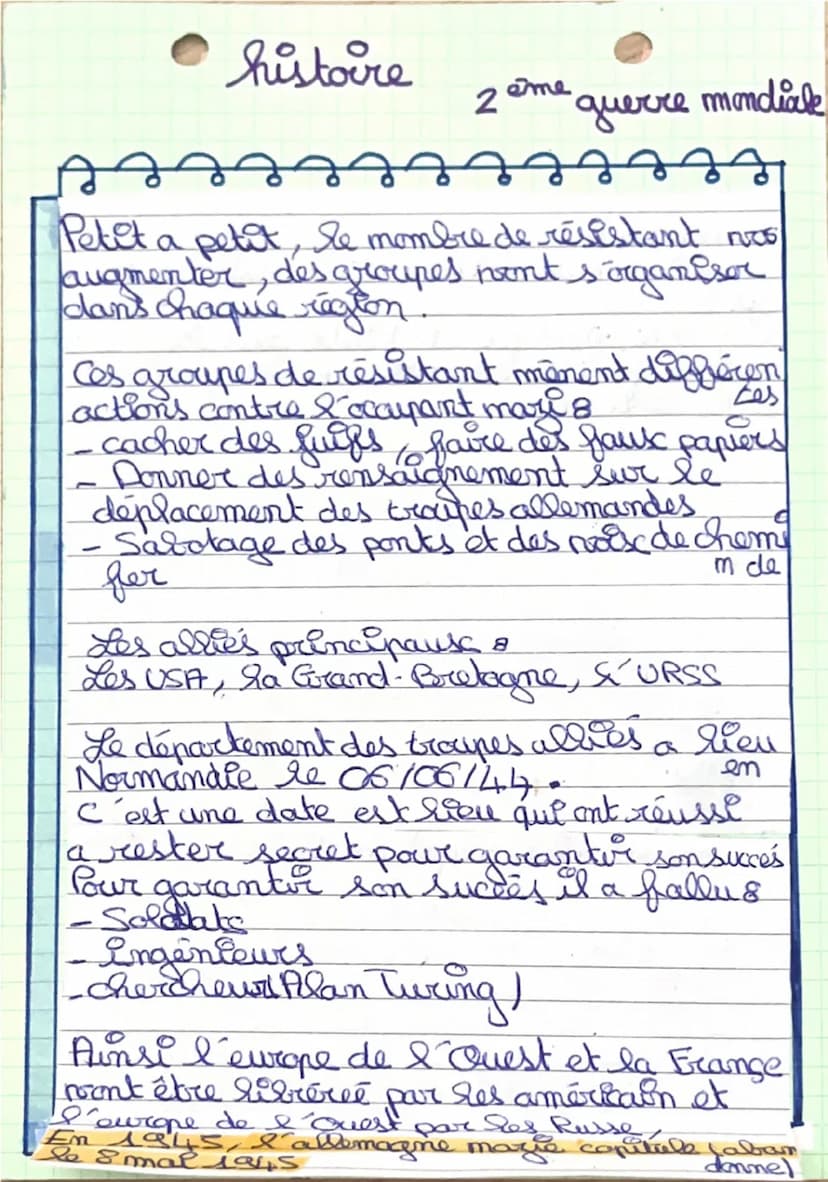 histoire
2ème guerre mondiale
Petit a petit, le nombre de résistant vas
augmenter, des groupes vont s'organiser
dans chaque région.
Ces groupes de résistant mènent différen
tes
actions contre l'occupant nazi :
- cacher des juifs, faire des faux papiers
- Donner des rensaignement sur le
déplacement des troupes allemandes
- Sabotage des ponts et des voix de chemi
n de
fer
Les alliés principaux :
Les USA, la Grand-Bretagne, L'URSS
Le département des troupes alliés a lieu
en
Normandie le 06/06/44.
C'est une date est lieu qui ont réussi
a rester secret pour garantir son succés
Pour garantir son succès il a fallu :
- Soldats
- ingénieurs
- chercheur (Alan Turing)
Ainsi l'europe de l'Ouest et la France
vont être libéreé par les américain et
l'europe de l'Ouest par les Russe,
En 1945, l'allemagne nazie capitule (aban
donne)
le 8 mai 1945